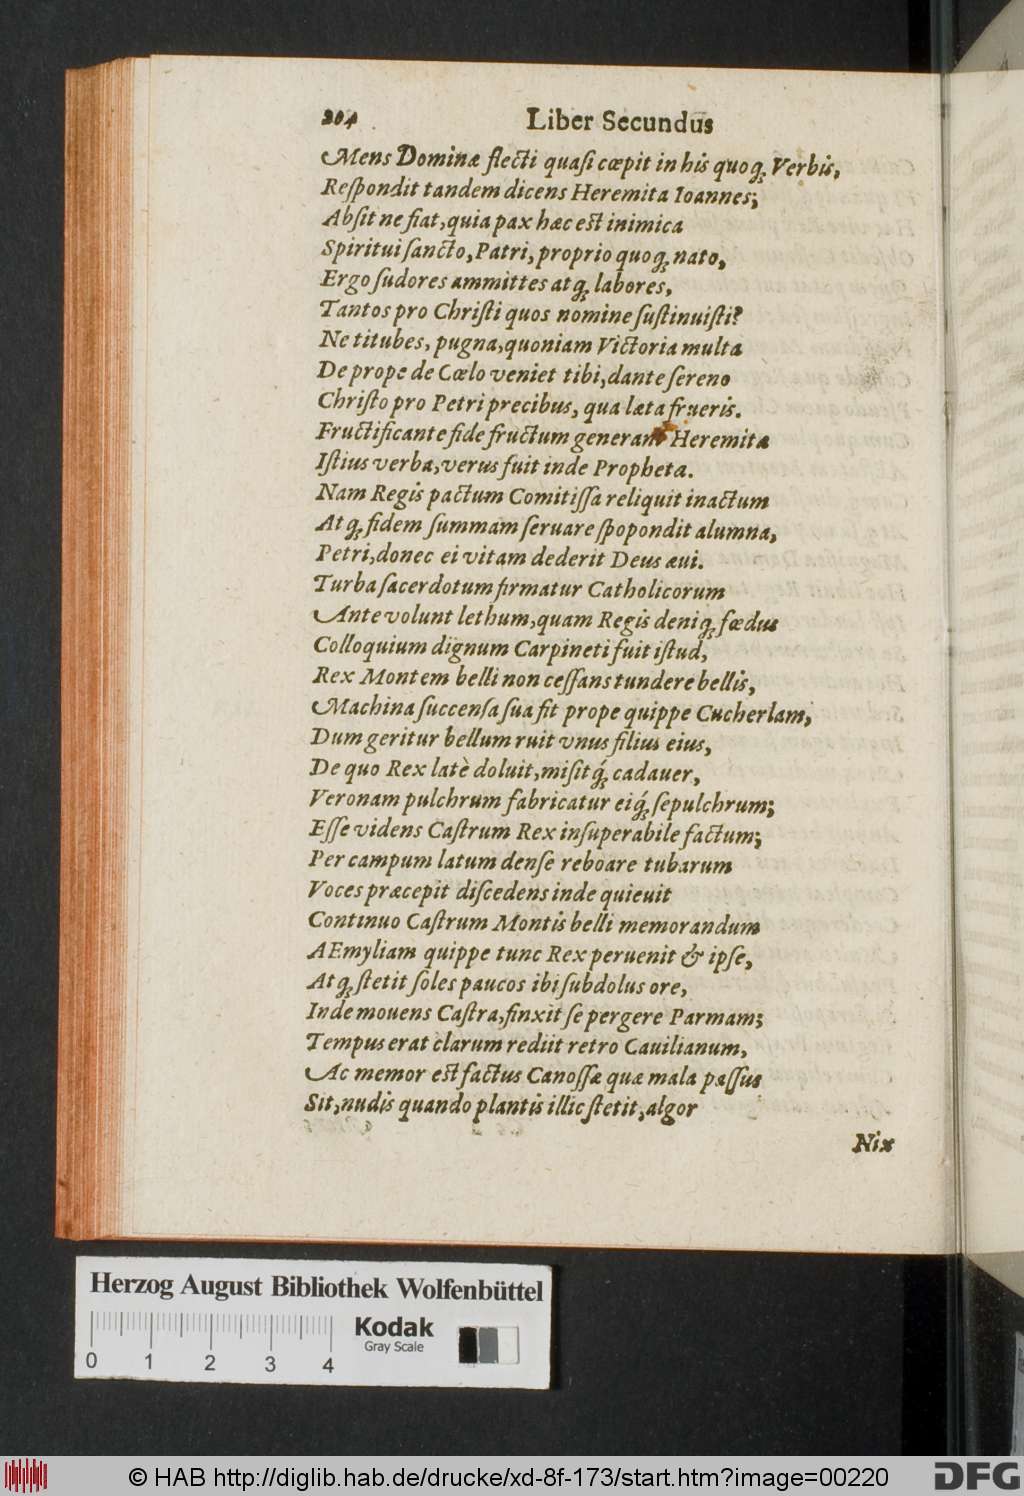 204 Liber Secundus
Mens Dominæ flecti quaſi cœpit in his quoq; Verbis,
Reſpondit tandem dicens Heremita Ioannes;
Abſit ne fiat, quia pax hæc est inimica
Spiritui ſancto, Patri, proprio quoq; nato,
Ergo ſudores ammittes atq; labores,
Tantos pro Chriſti quos nomine ſuſtinuiſti?
Ne titubes, pugna, quoniam Victoria multa
De prope de Cœlo veniet tibi, dante ſereno
Chriſto pro Petri precibus, qua læta frueris.
Fructificante fide fructum generant Heremita
Iſtius verba, verus fuit inde Propheta.
Nam Regis pactum Comitiſſa reliquit inactum
Atq; fidem ſummam ſeruare ſpopondit alumna,
Petri, donec ei vitam dederit Deus æui.
Turba ſacerdotum firmatur Catholicorum
Ante volunt lethum, quam Regis deniq; fœdus
Colloquium dignum Carpineti fuit iſtud,
Rex Montem belli non ceſſans tundere bellis,
Machina ſuccenſa ſua fit prope quippe Cucherlam,
Dum geritur bellum ruit vnus filius eius,
De quo Rex latè doluit, miſitq́; cadauer,
Veronam pulchrum fabricatur eiq́; ſepulchrum;
Eſſe videns Caſtrum Rex inſuperabile factum;
Per campum latum denſe reboare tubarum
Voces præcepit diſcedens inde quieuit
Continuo Caſtrum Montis belli memorandum
AEmyliam quippe tunc Rex peruenit & ipſe,
Atq; ſtetit ſoles paucos ibi ſubdolus ore,
Inde mouens Caſtra, finxit ſe pergere Parmam;
Tempus erat clarum rediit retro Cauilianum,
Ac memor est factus Canoſſæ quæ mala paſſus
Sit, nudis quando plantis illic ſtetit, algor
Nix
Herzog August Bibliothek Wolfenbüttel
Kodak
Gray Scale
0 1 2 3 4
© HAB http://diglib.hab.de/drucke/xd-8f-173/start.htm?image=00220
DFG